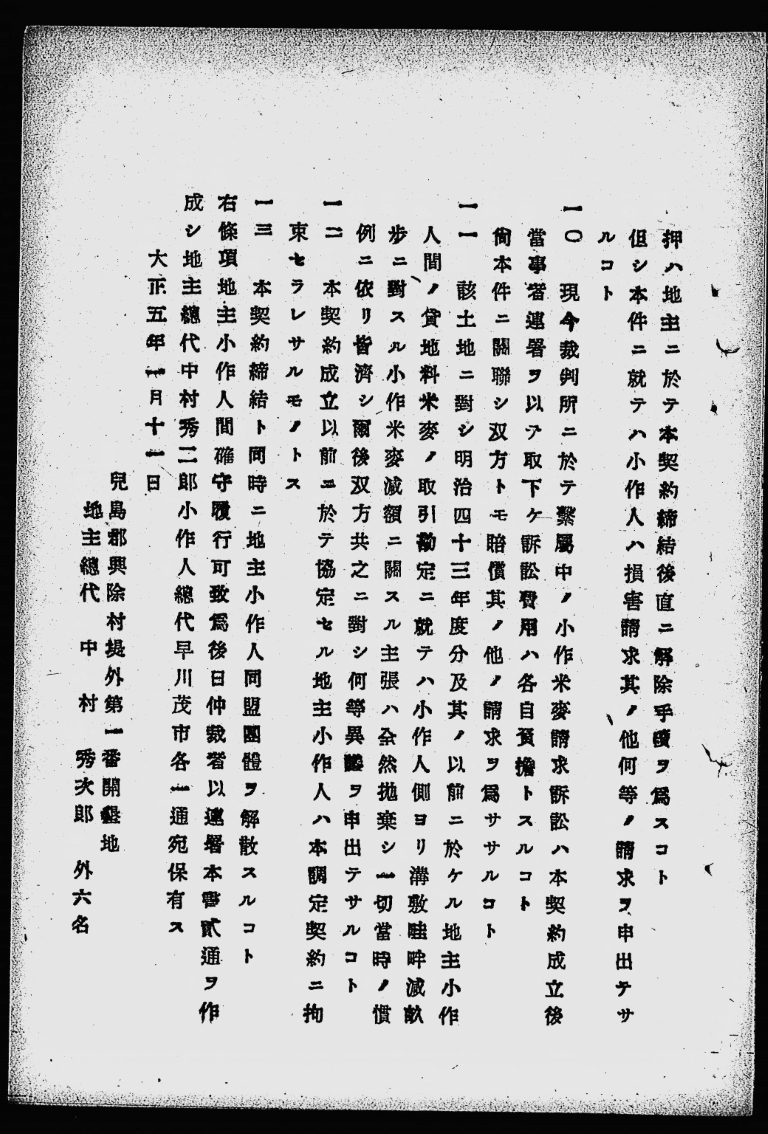 押ハ地主ニ於テ本契約締結後直ニ解除手續ヲ爲スコト
但シ本件ニ就テハ小作人ハ損害請求其ノ他何等ノ請求ヲ申出テサ
ルコト
一〇　現今裁判所ニ於テ繫屬中ノ小作米麥請求訴訟ハ本契約成立後
當事者連署ヲ以テ取下ケ訴訟費用ハ各自負擔トスルコト
尙本件ニ關聯シ双方トモ賠償其ノ他ノ請求ヲ爲ササルコト
一一　該土地ニ對シ明治四十三年度分及其ノ以前ニ於ケル地主小作
人間ノ貸地料米麥ノ取引勘定ニ就テハ小作人側ヨリ溝敷畦畔減畝
步ニ對スル小作米麥減額ニ關スル主張ハ全然抛棄シ一切當時ノ慣
例ニ依リ皆濟シ爾後双方共之ニ對シ何等異議ヲ申出テサルコト
一二　本契約成立以前ニ於テ協定セル地主小作人ハ本調定契約ニ拘
束セラレサルモノトス
一三　本契約締結ト同時ニ地主小作人同盟團體ヲ解散スルコト
右條項地主小作人間確守履行可致爲後日仲裁者以連署本書貳通ヲ作
成シ地主總代中村秀二郎小作人總代早川茂市各一通宛保有ス
大正五年一月十一日
兒島郡興除村堤外第一番開墾地
地主總代　中　村　秀次郎　外六名